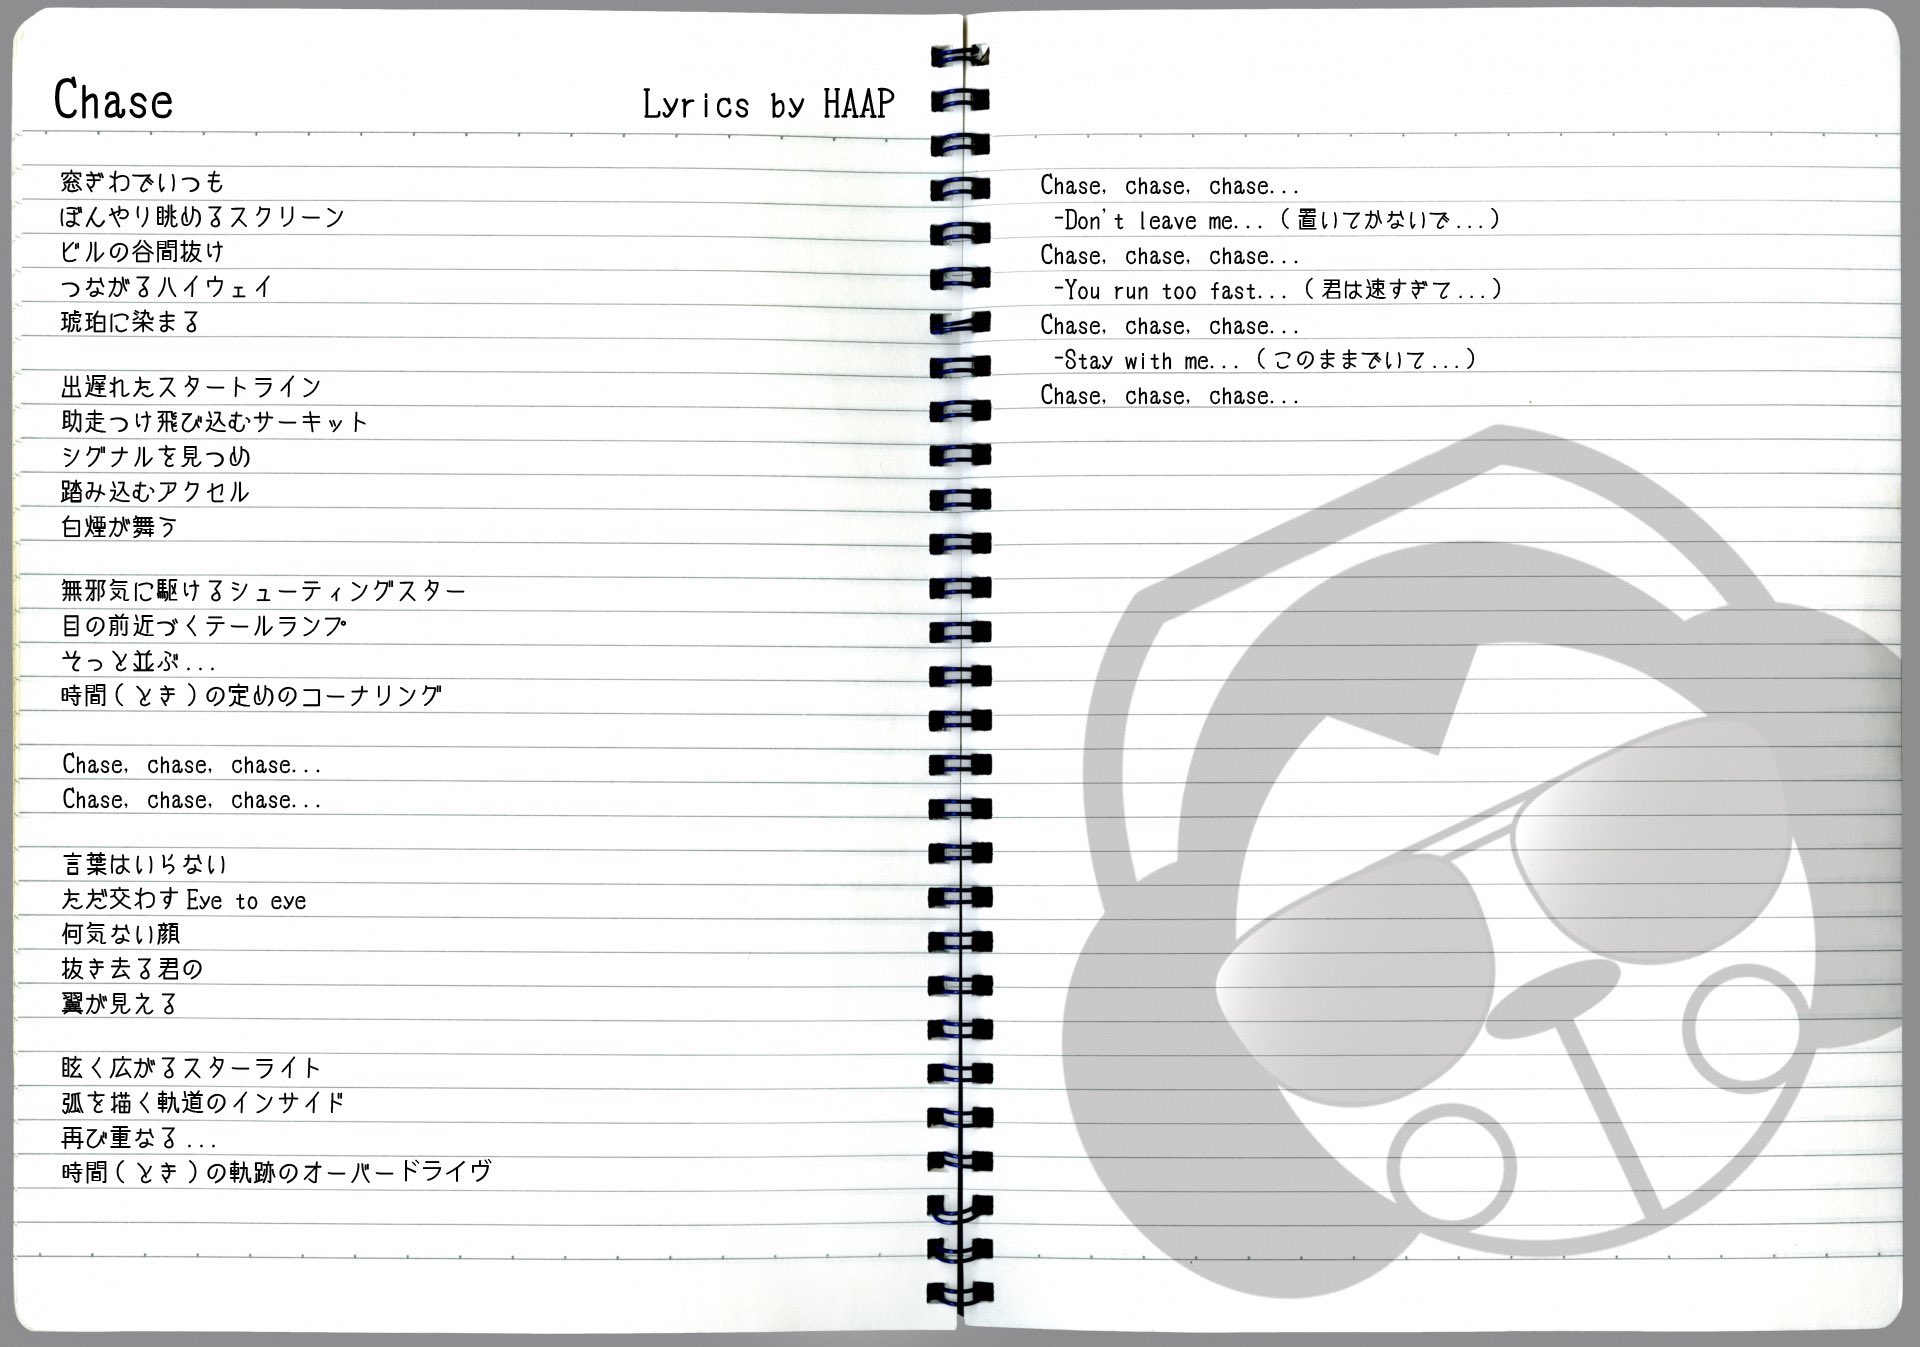 Chase
Lyrics by HAAP
窓ぎわでいつも
ぼんやり眺めるスクリーン
ビルの谷間抜け
つながるハイウェイ
琥珀に染まる
出遅れたスタートライン
助走つけ飛び込むサーキット
シグナルを見つめ
踏み込むアクセル
白煙が舞う
無邪気に駆けるシューティングスター
目の前近づくテールランプ
そっと並ぶ...
時間(とき)の定めのコーナリング
Chase, chase, chase...
Chase, chase, chase...
言葉はいらない
ただ交わすEye to eye
何気ない顔
抜き去る君の
翼が見える
眩く広がるスターライト
弧を描く軌道のインサイド
再び重なる...
時間(とき)の軌跡のオーバードライヴ
Chase, chase, chase...
-Don't leave me...(置いてかないで...)
Chase, chase, chase...
-You run too fast...(君は速すぎて...)
Chase, chase, chase...
-Stay with me...(このままでいて...)
Chase, chase, chase...